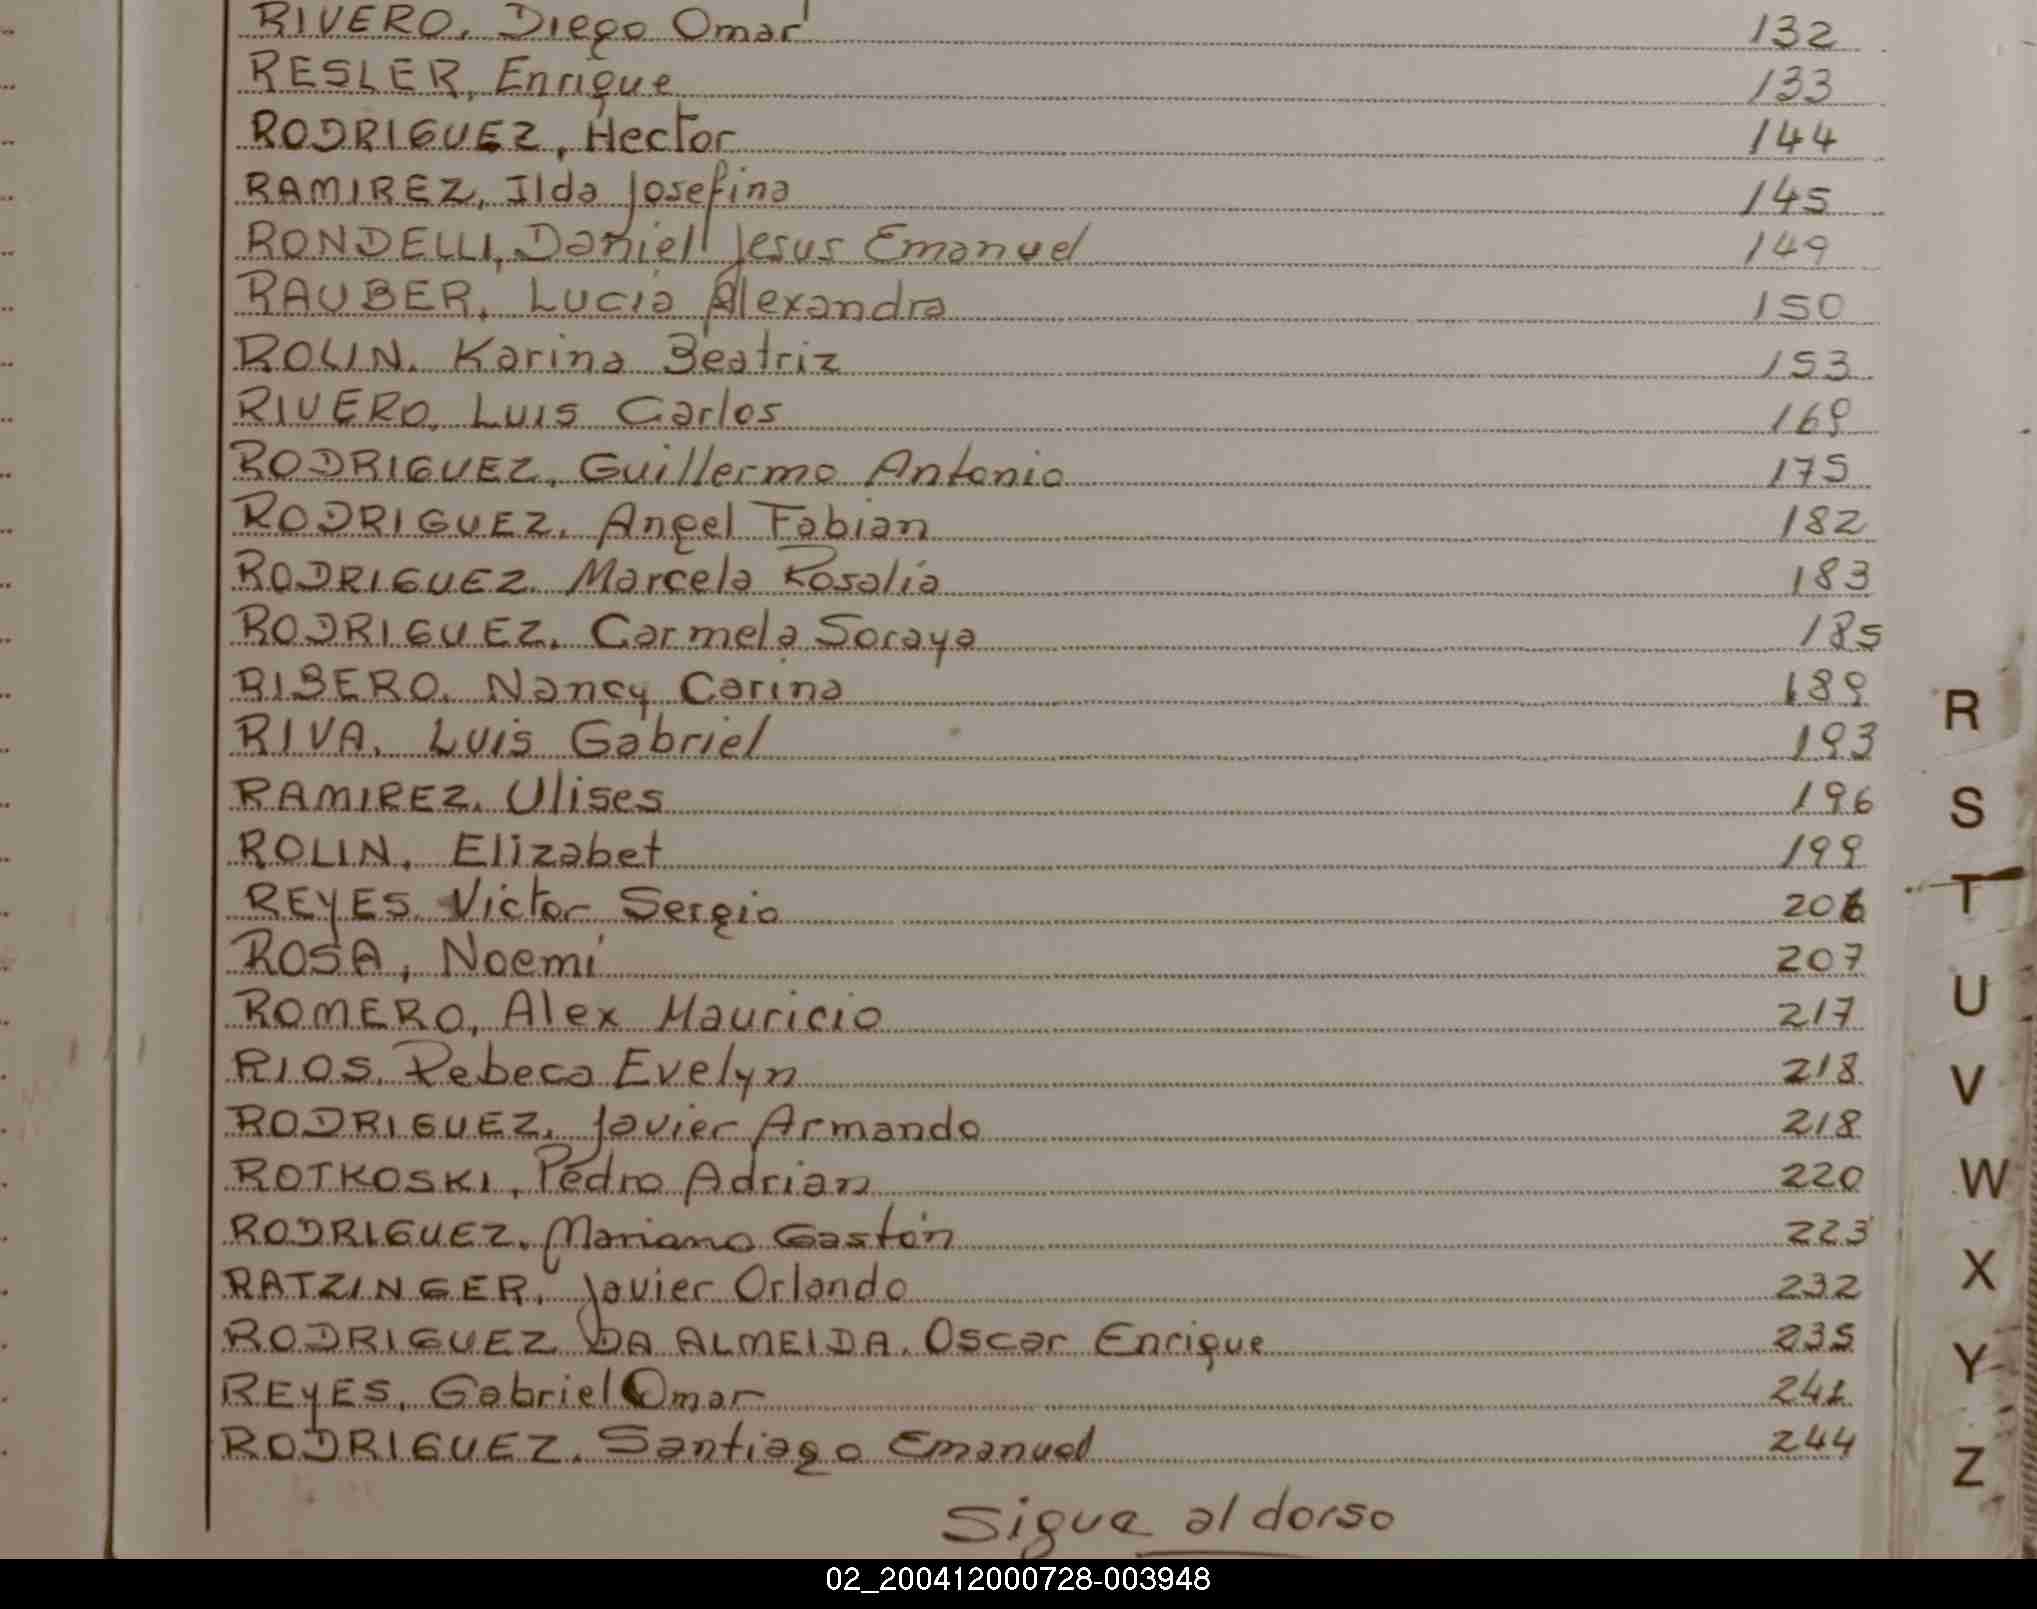 RIVERO, Diego Omar 132
RESLER, Enrique 133
RODRIGUEZ, Hector 144
RAMIREZ, Ilda Josefina 145
RONDELLI, Daniel Jesus Emanuel 149
RAUBER, Lucia Alexandra 150
ROLIN, Karina Beatriz 153
RIVERO, Luis Carlos 169
RODRIGUEZ, Guillermo Antonio 175
RODRIGUEZ, Angel Fabian 182
RODRIGUEZ, Marcela Rosalia 183
RODRIGUEZ, Carmela Soraya 185
RIBERO, Nancy Carina 189
RIVA, Luis Gabriel 193
RAMIREZ, Ulises 196
ROLIN, Elizabet 199
REYES, Victor Sergio
ROSA, Noemí 207
ROMERO, Alex Mauricio 217
RIOS, Rebeca Evelyn 218
RODRIGUEZ, Javier Armando 218
ROTKOSKI, Pedro Adrian 220
RODRIGUEZ, Mariano Gastón 223
RATZINGER, Javier Orlando 232
RODRIGUEZ DA ALMEIDA, Oscar Enrique 235
REYES, Gabriel Omar 241
RODRIGUEZ, Santiago Emanuel 244
Sigue al dorso
R
S
T
U
V
W
X
Y
Z
02_200412000728-003948